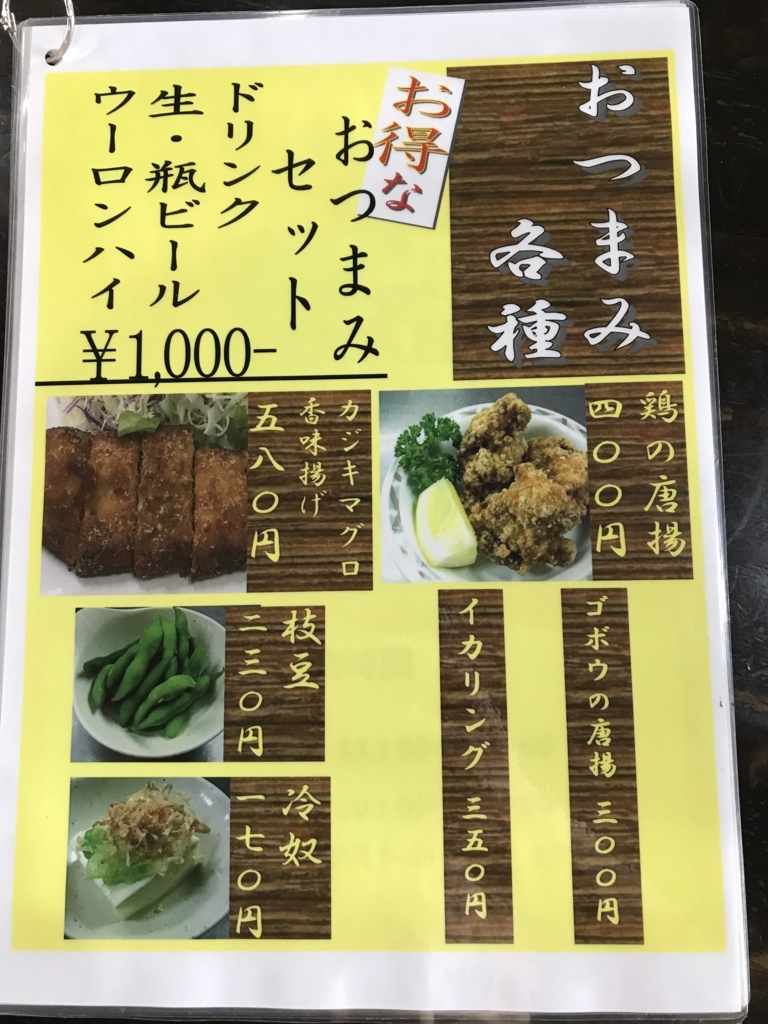 おつまみ
各種
お得な
おつまみ
セット
ドリンク
生・瓶ビール
ウーロンハイ
￥1,000-
鶏の唐揚
四〇〇円
カジキマグロ
香味揚げ
五八〇円
ゴボウの唐揚 三〇〇円
イカリング 三五〇円
枝豆
二三〇円
冷奴
一七〇円